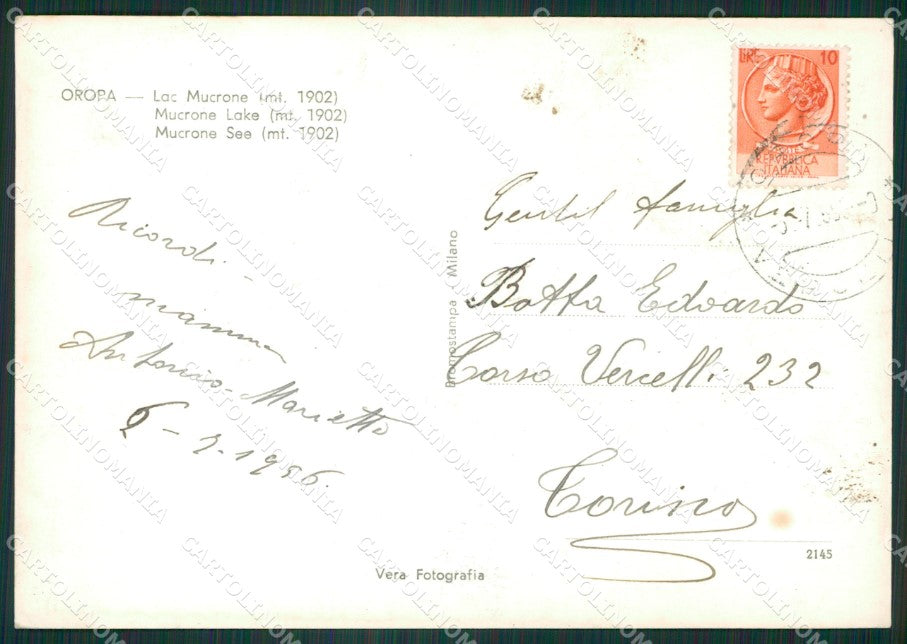 OROPA — Lac Mucrone (mt. 1902)
Mucrone Lake (mt. 1902)
Mucrone See (mt. 1902)
LIRE 10
REPVBBLICA
ITALIANA
Ricordi -
mamma
Antonio - Marietto
6 - 7 - 1956.
Bromostampa - Milano
Gentil famiglia
Botta Edoardo
Corso Vercelli 232
Torino
2145
Vera Fotografia
CARTOLINOMANIA